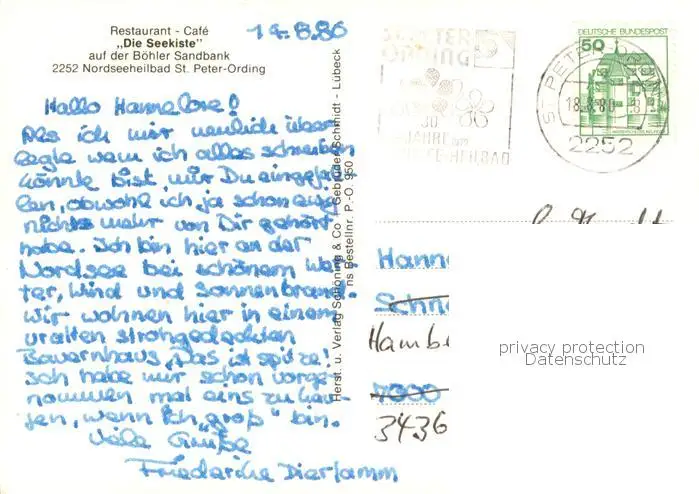 Restaurant - Café
„Die Seekiste"
auf der Böhler Sandbank
2252 Nordseeheilbad St. Peter-Ording
14.8.80
Hallo Hannelore!
Als ich mir neulich über
legte wem ich alles schreiben
könnte bist mir Du eingefal
len, obwohl ich ja schon ewig
nichts mehr von Dir gehört
habe. Ich bin hier an der
Nordsee bei schönem Wet
ter, Wind und Sonnenbrand.
Wir wohnen hier in einem
uralten strohgedeckten
Bauernhaus, Das ist spitze!
Ich habe mir schon vorge
nommen mal eins zu kau
fen, wenn ich „groß" bin.
Viele Grüße
Friederike Dierlamm
Herst. u. Verlag Schöning & Co + Gebrüder Schmidt - Lübeck
Bestellnr. P.-O. 950
ST. PETER
ORDING
30
JAHRE
HEILBAD
DEUTSCHE BUNDESPOST
50
ST. PETER-ORDING
18.8.80
2252
Hann
Schn
Hambe
7000
3436
privacy protection
Datenschutz